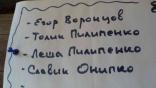 - Егор Воронцов
- Толик Пилипенко
- Леша Пилипенко
- Славик Онипко